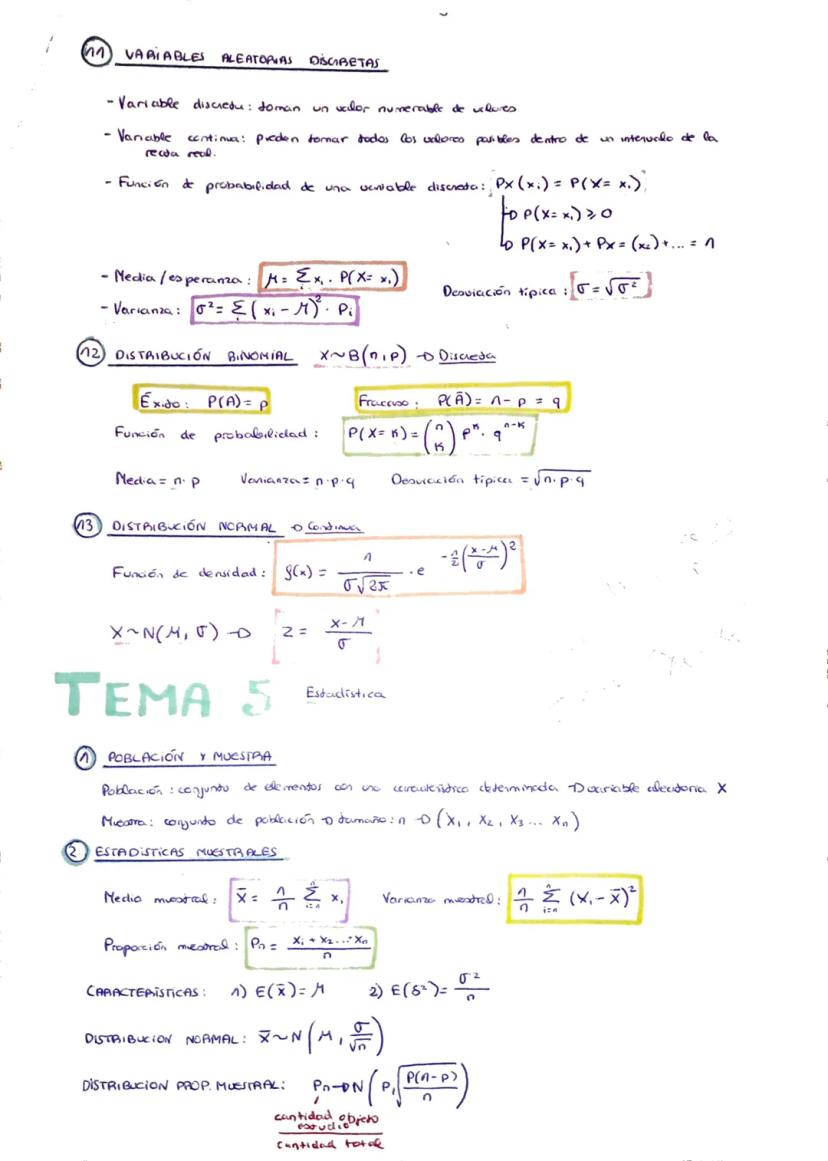 11 VARIABLES ALEATORIAS DISCRETAS
- Variable discreta: toman un valor numerable de valores
- Variable continua: pueden tomar todos los valores posibles dentro de un intervalo de la
recta real.
- Función de probabilidad de una variable discreta: Px (xi) = P(X= xi)
P(X= xi) ⩾ 0
P(X= xi) + Px = (x2) + ... = 1
- Media/esperanza: μ = Σ xi · P(X= xi)
Desviación típica: σ = √σ²
- Varianza: σ² = Σ (xi - μ)² · Pi
12 DISTRIBUCIÓN BINOMIAL X~B(n,p) → Discreta
Éxido: P(A) = p Fracaso: P(Ā) = 1 - p = q
Función de probabilidad: P(X= K) = (n K) p^K · q^n-K
Media = n · p Varianza = n · p · q Desviación típica = √n · p · q
13 DISTRIBUCIÓN NORMAL → Continua
Función de densidad: f(x) = 1/σ√2π · e^-1/2 (x-μ/σ)²
X~N(μ, σ) → Z = x-μ/σ
TEMA 5 Estadística
1 POBLACIÓN Y MUESTRA
Población: conjunto de elementos con una característica determinada → variable aleatoria X
Muestra: conjunto de población → tamaño: n → (X1, X2, X3... Xn)
2. ESTADÍSTICAS MUESTRALES
Media muestral: X̄ = 1/n Σ xi Varianza muestral: 1/n Σ (Xi - X̄)²
Proporción muestral: Pn = Xi + X2...+Xn/n
CARACTERÍSTICAS: 1) E(X̄) = μ 2) E(S²) = σ²/n
DISTRIBUCION NORMAL: X̄~N(μ, σ/√n)
DISTRIBUCION PROP. MUESTRAL: Pn→N(P, √P(1-P)/n)
cantidad objeto
estudio
Cantidad total